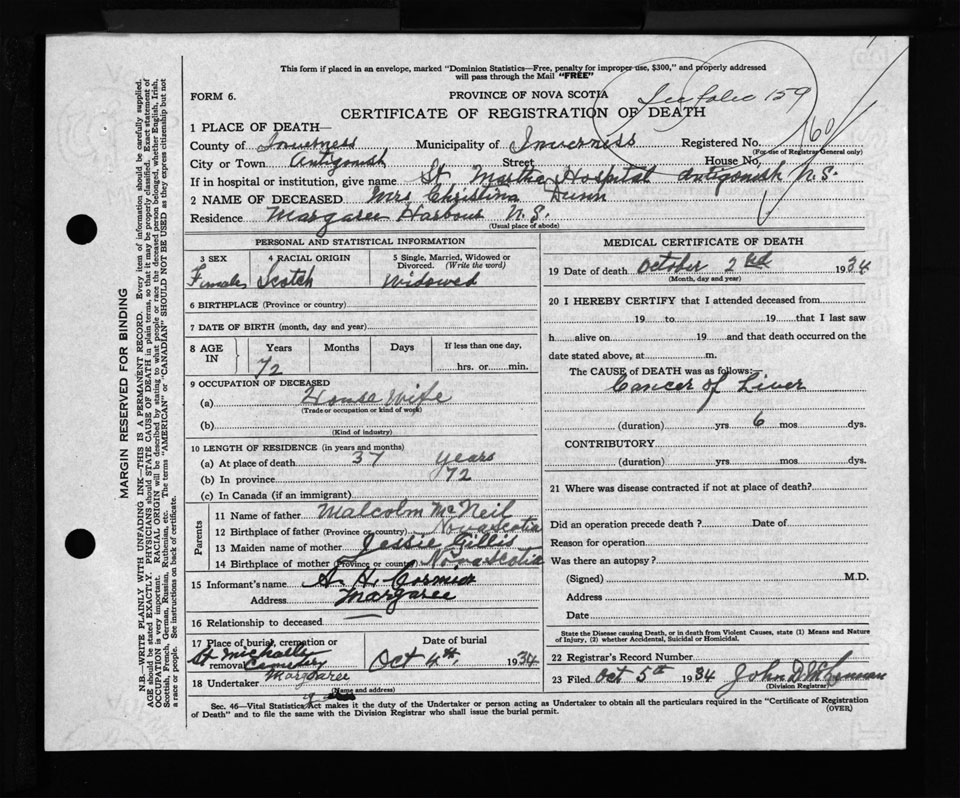 This form if placed in an envelope, marked "Dominion Statistics—Free, penalty for improper use, $300," and properly addressed
will pass through the Mail "FREE"
FORM 6.
PROVINCE OF NOVA SCOTIA
See folio 159
CERTIFICATE OF REGISTRATION OF DEATH
160
1 PLACE OF DEATH—
County of Inverness Municipality of Inverness Registered No.
(For use of Registrar General only)
City or Town Antigonish Street House No.
If in hospital or institution, give name St. Martha Hospital Antigonish N.S.
2 NAME OF DECEASED Mrs Christina Dunn
Residence Margaree Harbour N.S.
(Usual place of abode)
PERSONAL AND STATISTICAL INFORMATION
3 SEX 4 RACIAL ORIGIN 5 Single, Married, Widowed or Divorced. (Write the word)
Female Scotch Widowed
6 BIRTHPLACE (Province or country)
7 DATE OF BIRTH (month, day and year)
8 AGE IN Years Months Days If less than one day,
72 hrs. or min.
9 OCCUPATION OF DECEASED
(a) House Wife
(Trade or occupation or kind of work)
(b)
(Kind of industry)
10 LENGTH OF RESIDENCE (in years and months)
(a) At place of death 37 years
(b) In province 72
(c) In Canada (if an immigrant)
Parents
11 Name of father Malcolm McNeil
12 Birthplace of father (Province or country) Nova Scotia
13 Maiden name of mother Jessie Gillis
14 Birthplace of mother (Province or country) Nova Scotia
15 Informant's name A. H. Cormier
Address Margaree
16 Relationship to deceased
17 Place of burial, cremation or removal St Michaels Cemetery Margaree
Date of burial
Oct 4th, 1934
18 Undertaker
(Name and address)
MEDICAL CERTIFICATE OF DEATH
19 Date of death October 2nd 1934
(Month, day and year)
20 I HEREBY CERTIFY that I attended deceased from
19 to 19 that I last saw
h alive on 19 and that death occurred on the
date stated above, at m.
The CAUSE of DEATH was as follows:—
Cancer of Liver
(duration) yrs 6 mos dys.
CONTRIBUTORY
(duration) yrs mos dys.
21 Where was disease contracted if not at place of death?
Did an operation precede death? Date of
Reason for operation
Was there an autopsy?
(Signed) M.D.
Address
Date
State the Disease causing Death, or in death from Violent Causes, state (1) Means and Nature
of Injury, (2) whether Accidental, Suicidal or Homicidal.
22 Registrar's Record Number
23 Filed Oct 5th 1934 John D.
(Division Registrar)
Sec. 46—Vital Statistics Act makes it the duty of the Undertaker or person acting as Undertaker to obtain all the particulars required in the "Certificate of Registration
of Death" and to file the same with the Division Registrar who shall issue the burial permit.
(OVER)
MARGIN RESERVED FOR BINDING
N.B.—WRITE PLAINLY WITH UNFADING INK—THIS IS A PERMANENT RECORD. Every item of information should be carefully supplied.
AGE should be stated EXACTLY. PHYSICIANS should STATE CAUSE OF DEATH in plain terms, so that it may be properly classified. Exact statement of
OCCUPATION is very important. RACIAL ORIGIN will be described by stating to what people or race the deceased person belonged, whether English, Irish,
Scottish, French, German, Russian, Ruthenian, etc. The terms "AMERICAN" or "CANADIAN" SHOULD NOT BE USED as they express citizenship but not
a race or people. See instructions on back of certificate.